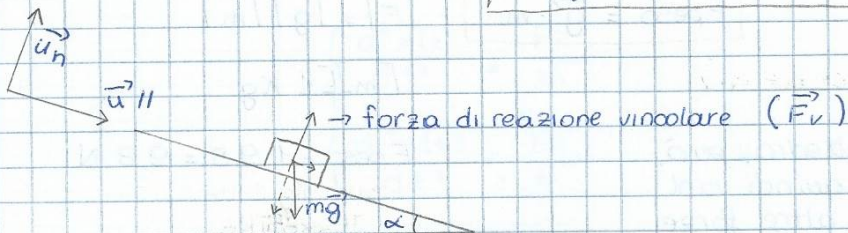 u⃗n
u⃗ //
→ forza di reazione vincolare (F⃗v)
mg⃗
α